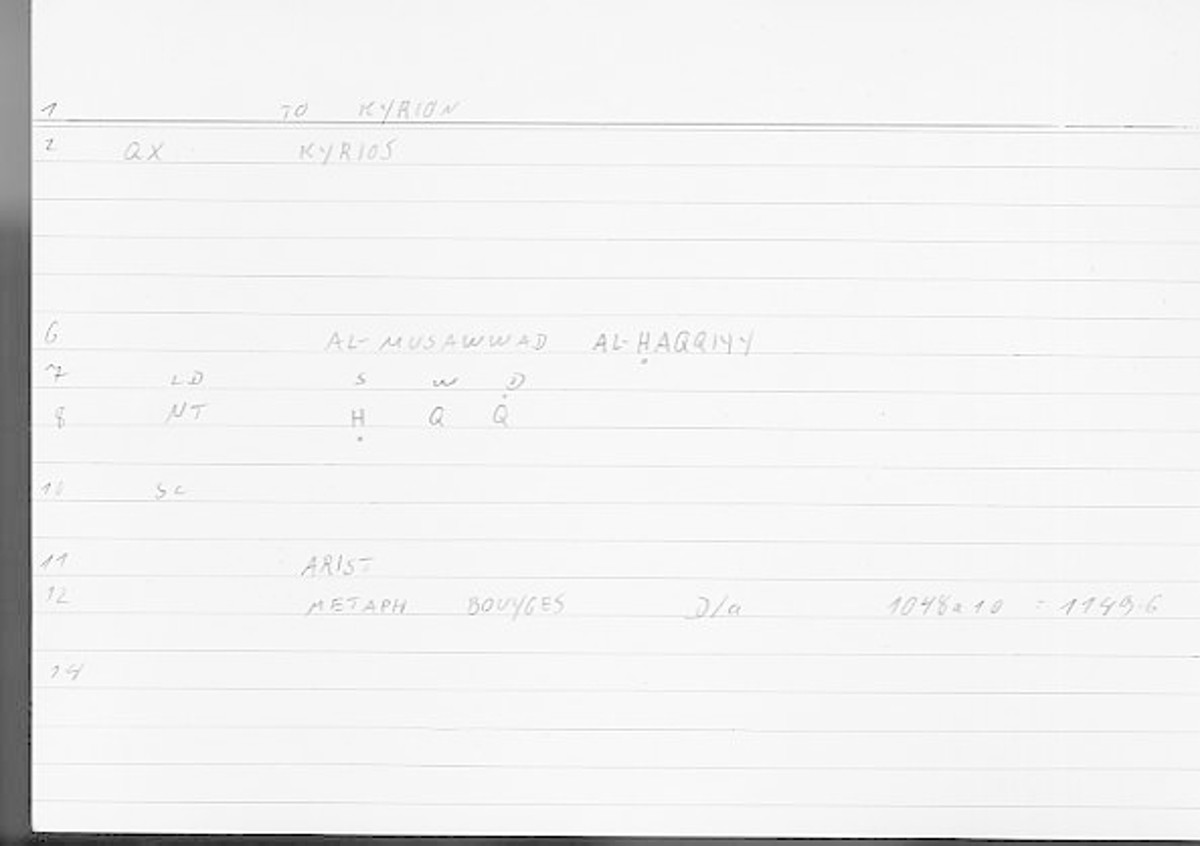 1 TO KYRION
2 QX KYRIOS
6 AL-MUSAWWAD AL-ḤAQQIYY
7 LD S W Ḍ
8 NT Ḥ Q Q
10 SC
11 ARIST
12 METAPH BOUYGES D/a 1048a10 = 1149.6
14